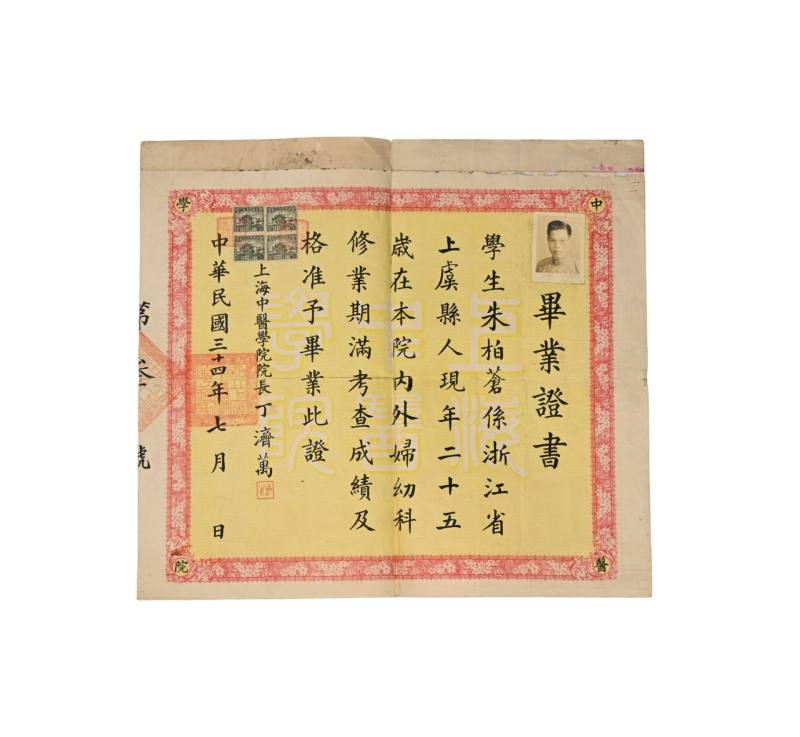 畢業證書
學生朱柏蒼係浙江省
上虞縣人現年二十五
歲在本院內外婦幼科
修業期滿考查成績及
格准予畢業此證
上海中醫學院院長丁濟萬
中華民國三十四年七月 日
中
醫
學
院
上海
中醫
學院